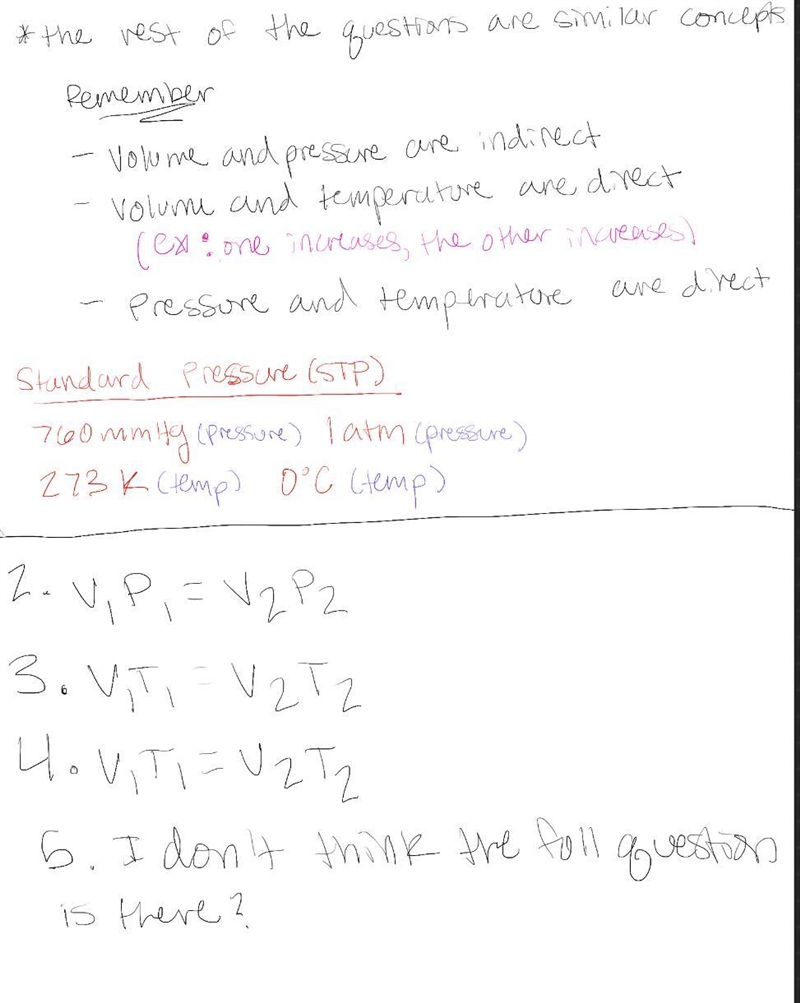 * the rest of the questions are similar concepts
Remember
- Volume and pressure are indirect
- Volume and temperature are direct
(ex: one increases, the other increases)
- Pressure and temperature are direct
Standard Pressure (STP)
760 mmHg (pressure) 1 atm (pressure)
273 K (temp) 0°C (temp)
2. V₁P₁ = V₂P₂
3. V₁T₁ = V₂T₂
4. V₁T₁ = V₂T₂
5. I don't think the full question
is there?